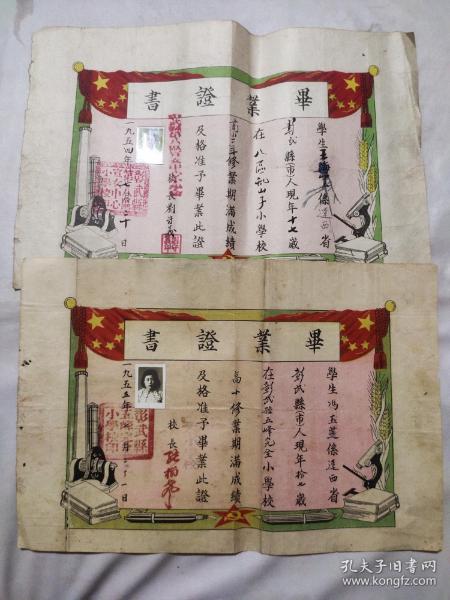 書證業畢
學生王
係遼西省
彰武縣市人現年十七歲
在八區
山子小學校
修業期滿成績
及格准予畢業此證
校長劉
一九五四年七月
十日
書證業畢
學生馮玉蓮係遼西省
彰武縣市人現年拾七歲
在彰武縣五峰完全小學校
高小修業期滿成績
及格准予畢業此證
校長
一九五五年
彰武縣
孔夫子旧書网
www.kongfz.com